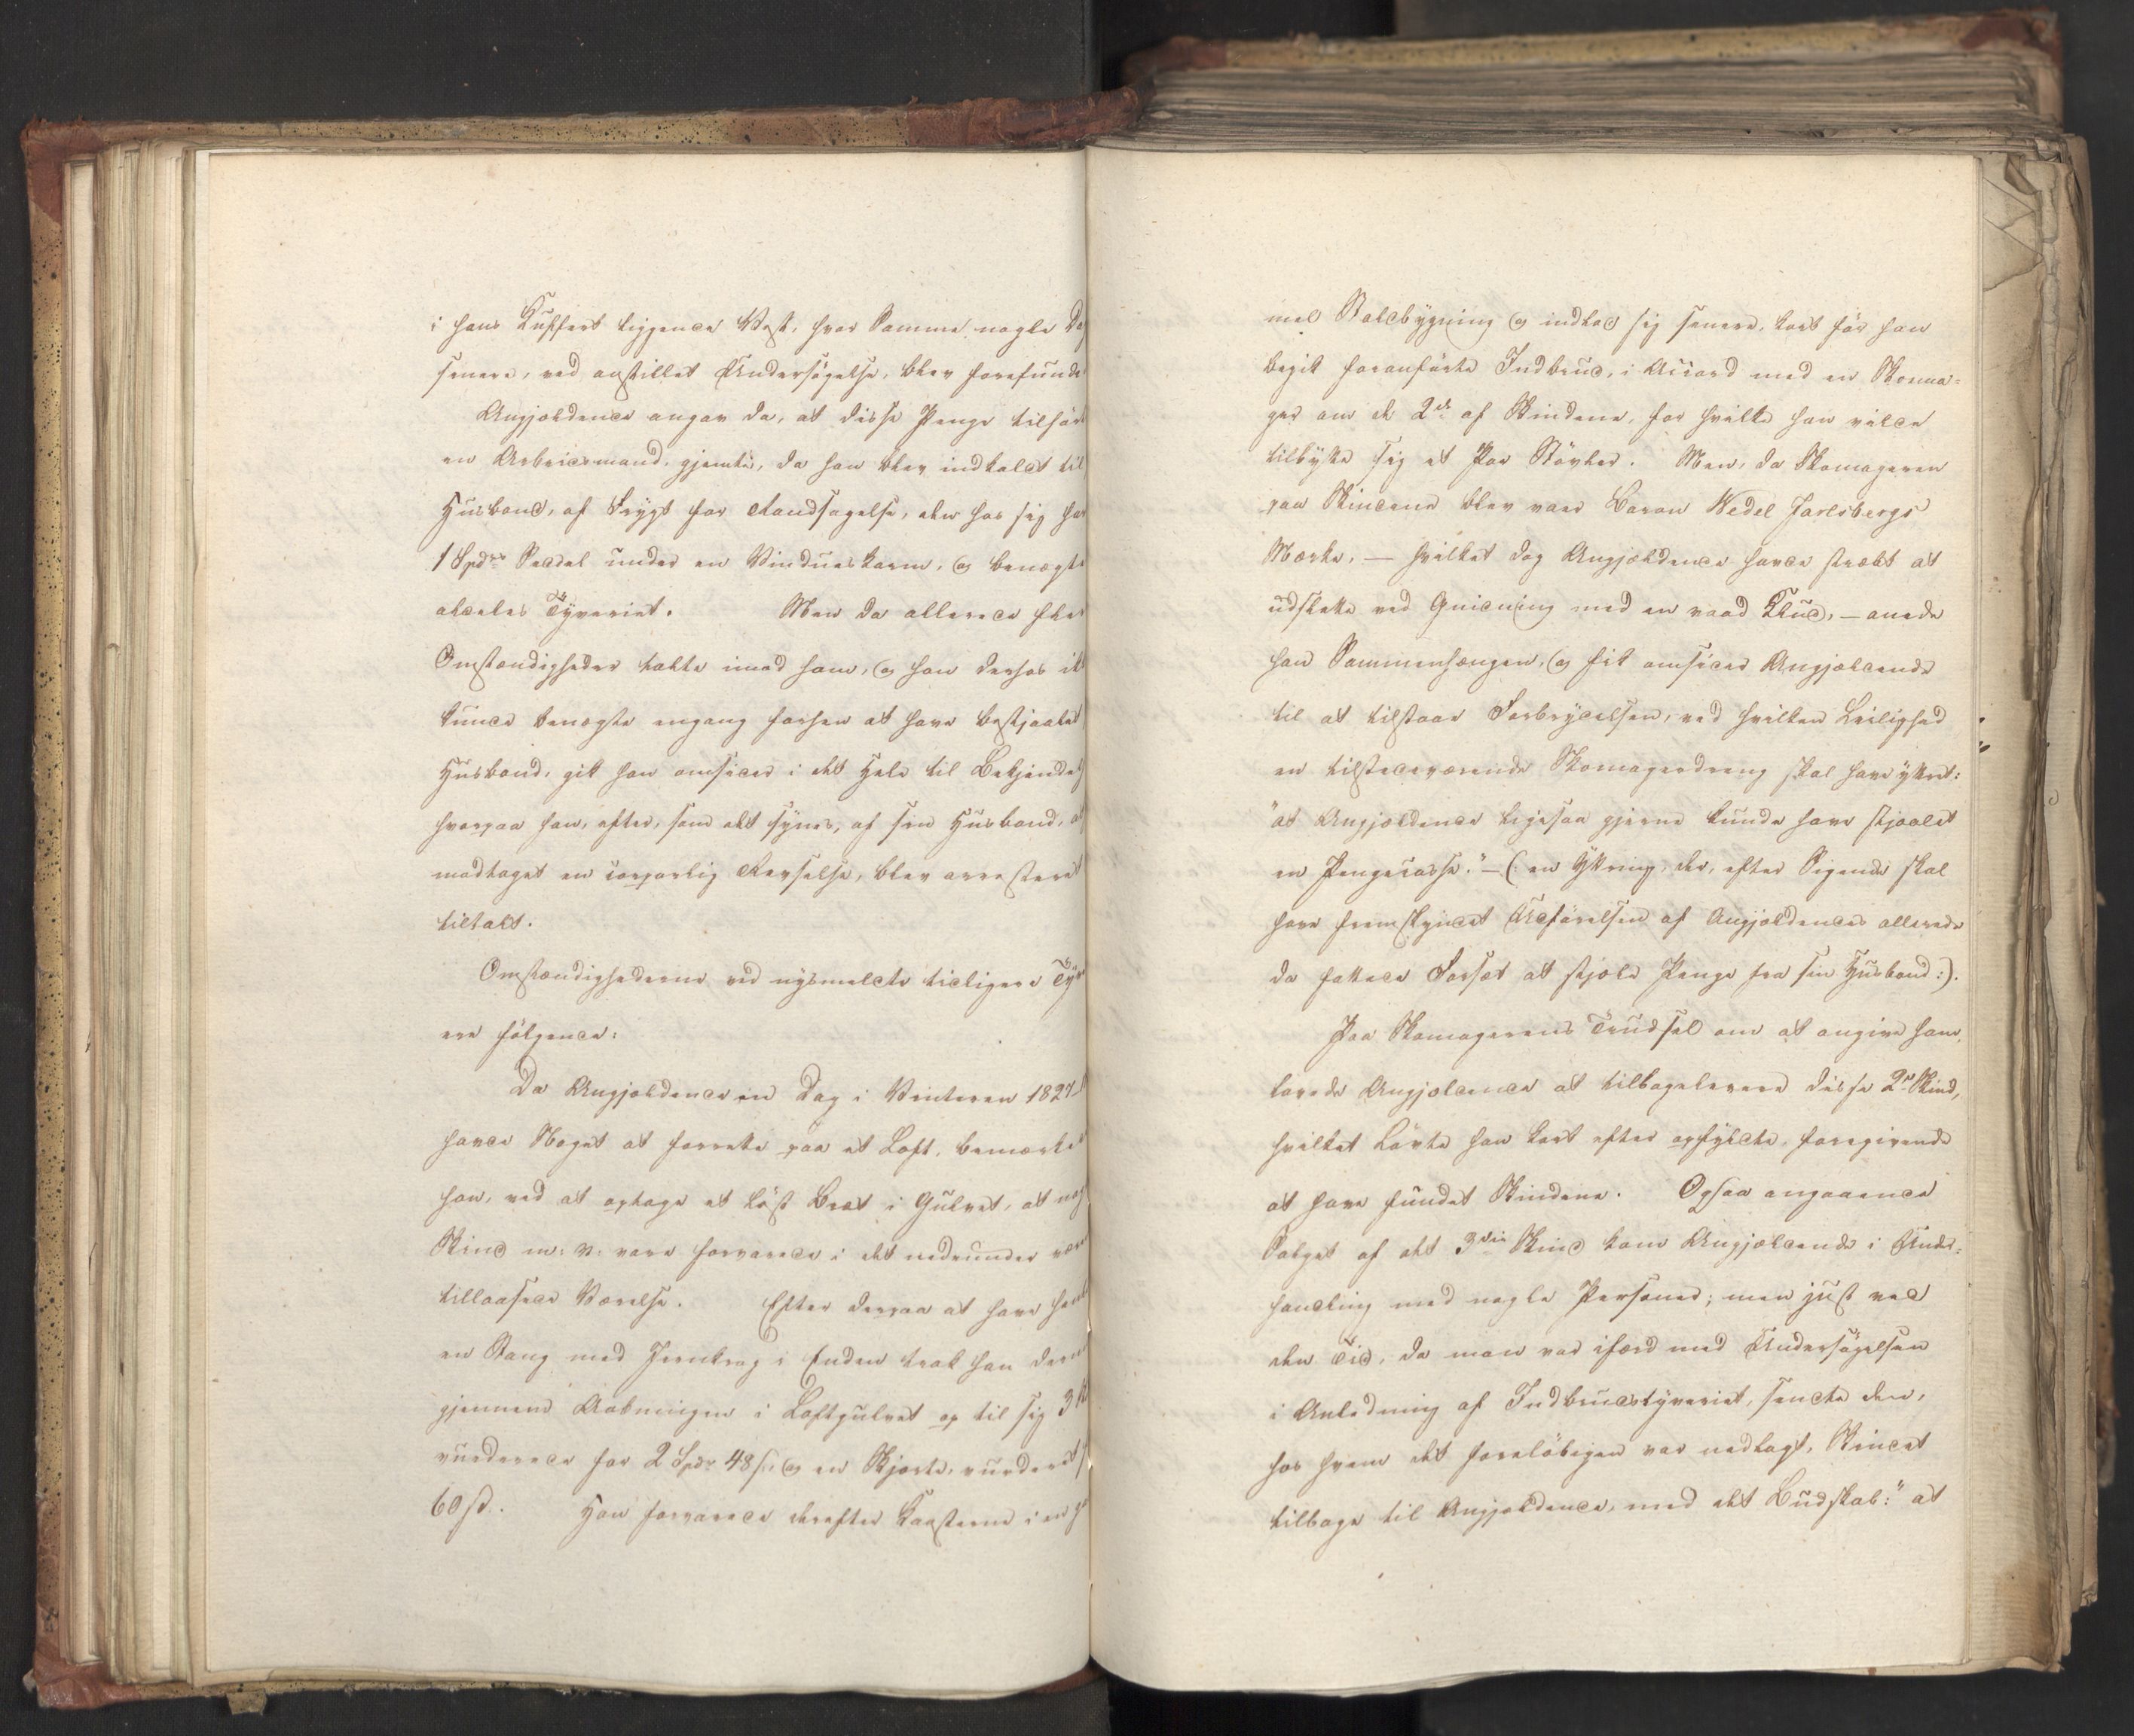 i hans Kuffert liggende Vest, hvor Samme nogle Da
senere, ved anstillet Undersøgelse, blev forefunde
Angjældende angav da, at disse Penge tilhør
en Arbeidsmand, gjemte, da han blev indkaldt til
Husbond, af Frygt for Randsagelse, den hos sig ha
1 Spdrs Seddel under en Vindueskarm, og benegte
aldeles Tyveriet. Men da allerede fler
Omstændigheder talte imod ham, og han derhos ik
kunde benegte engang forhen at have bestjaalet
Husbond, gik han omsider i det Hele til Bekjendel
hvorpaa han, efter, som det synes, af sin Husbond, at
modtaget en corporlig Revselse, blev arresteret
tiltalt.
Omstændighederne ved nysmeldte tidligere Tyv
ere følgende:
Da Angjældende en Dag i Vinteren 1827
havde Noget at forrette paa et Loft, bemærked
han, ved at optage et løst Bret i Gulvet, at nog
Skind m: v: vare forvarede i det nedrunder vær
tillaasede Værelse. Efter derpaa at have hent
en Stang med Jernkrog i Enden trak han dern
gjennem Aabningen i Loftgulvet op til sig 3 St
vurderede for 2 Spdr 48 s, og en Skjorte, vurderet
60 s. Han forvarede derefter Kosterne i en ga
mel Staldbygning og indlod sig senere, kort før han
begik foranførte Indbrud, i Accord med en Skoma=
ger om de 2de af Skindene, for hvilke han vilde
tilbytte sig et Par Støvler. Men, da Skomageren
paa Skindene blev vaer Baron Wedel Jarlsbergs
Mærke, — hvilket dog Angjældende havde stræbt at
udslette ved Gnidning med en vaad Klud, — anede
han Sammenhængen, og fik omsider Angjældende
til at tilstaae Forbrydelsen, ved hvilken Leilighed
en tilstedeværende Skomagerdreng skal have yttret:
"at Angjældende ligesaa gjerne kunde have stjaalet
en Pengecasse." — (: en Yttring, der, efter Sigende skal
have fremskyndet Udførelsen af Angjældendes allerede
da fattede Forsæt at stjæle Penge fra sin Husbond :).
Paa Skomagerens Trudsel om at angive ham,
lovede Angjældende at tilbagelevere disse 2de Skind,
hvilket Løvte han kort efter opfyldte, foregivende
at have fundet Skindene. Ogsaa angaaende
Salget af det 3die Skind kom Angjældende i Under=
handling med nogle Personer; men just ved
den Tid, da man var ifærd med Undersøgelsen
i Anledning af Indbrudstyveriet, sendte den,
hos hvem det foreløbigen var nedlagt, Skindet
tilbage til Angjældende, med det Budskab: "at